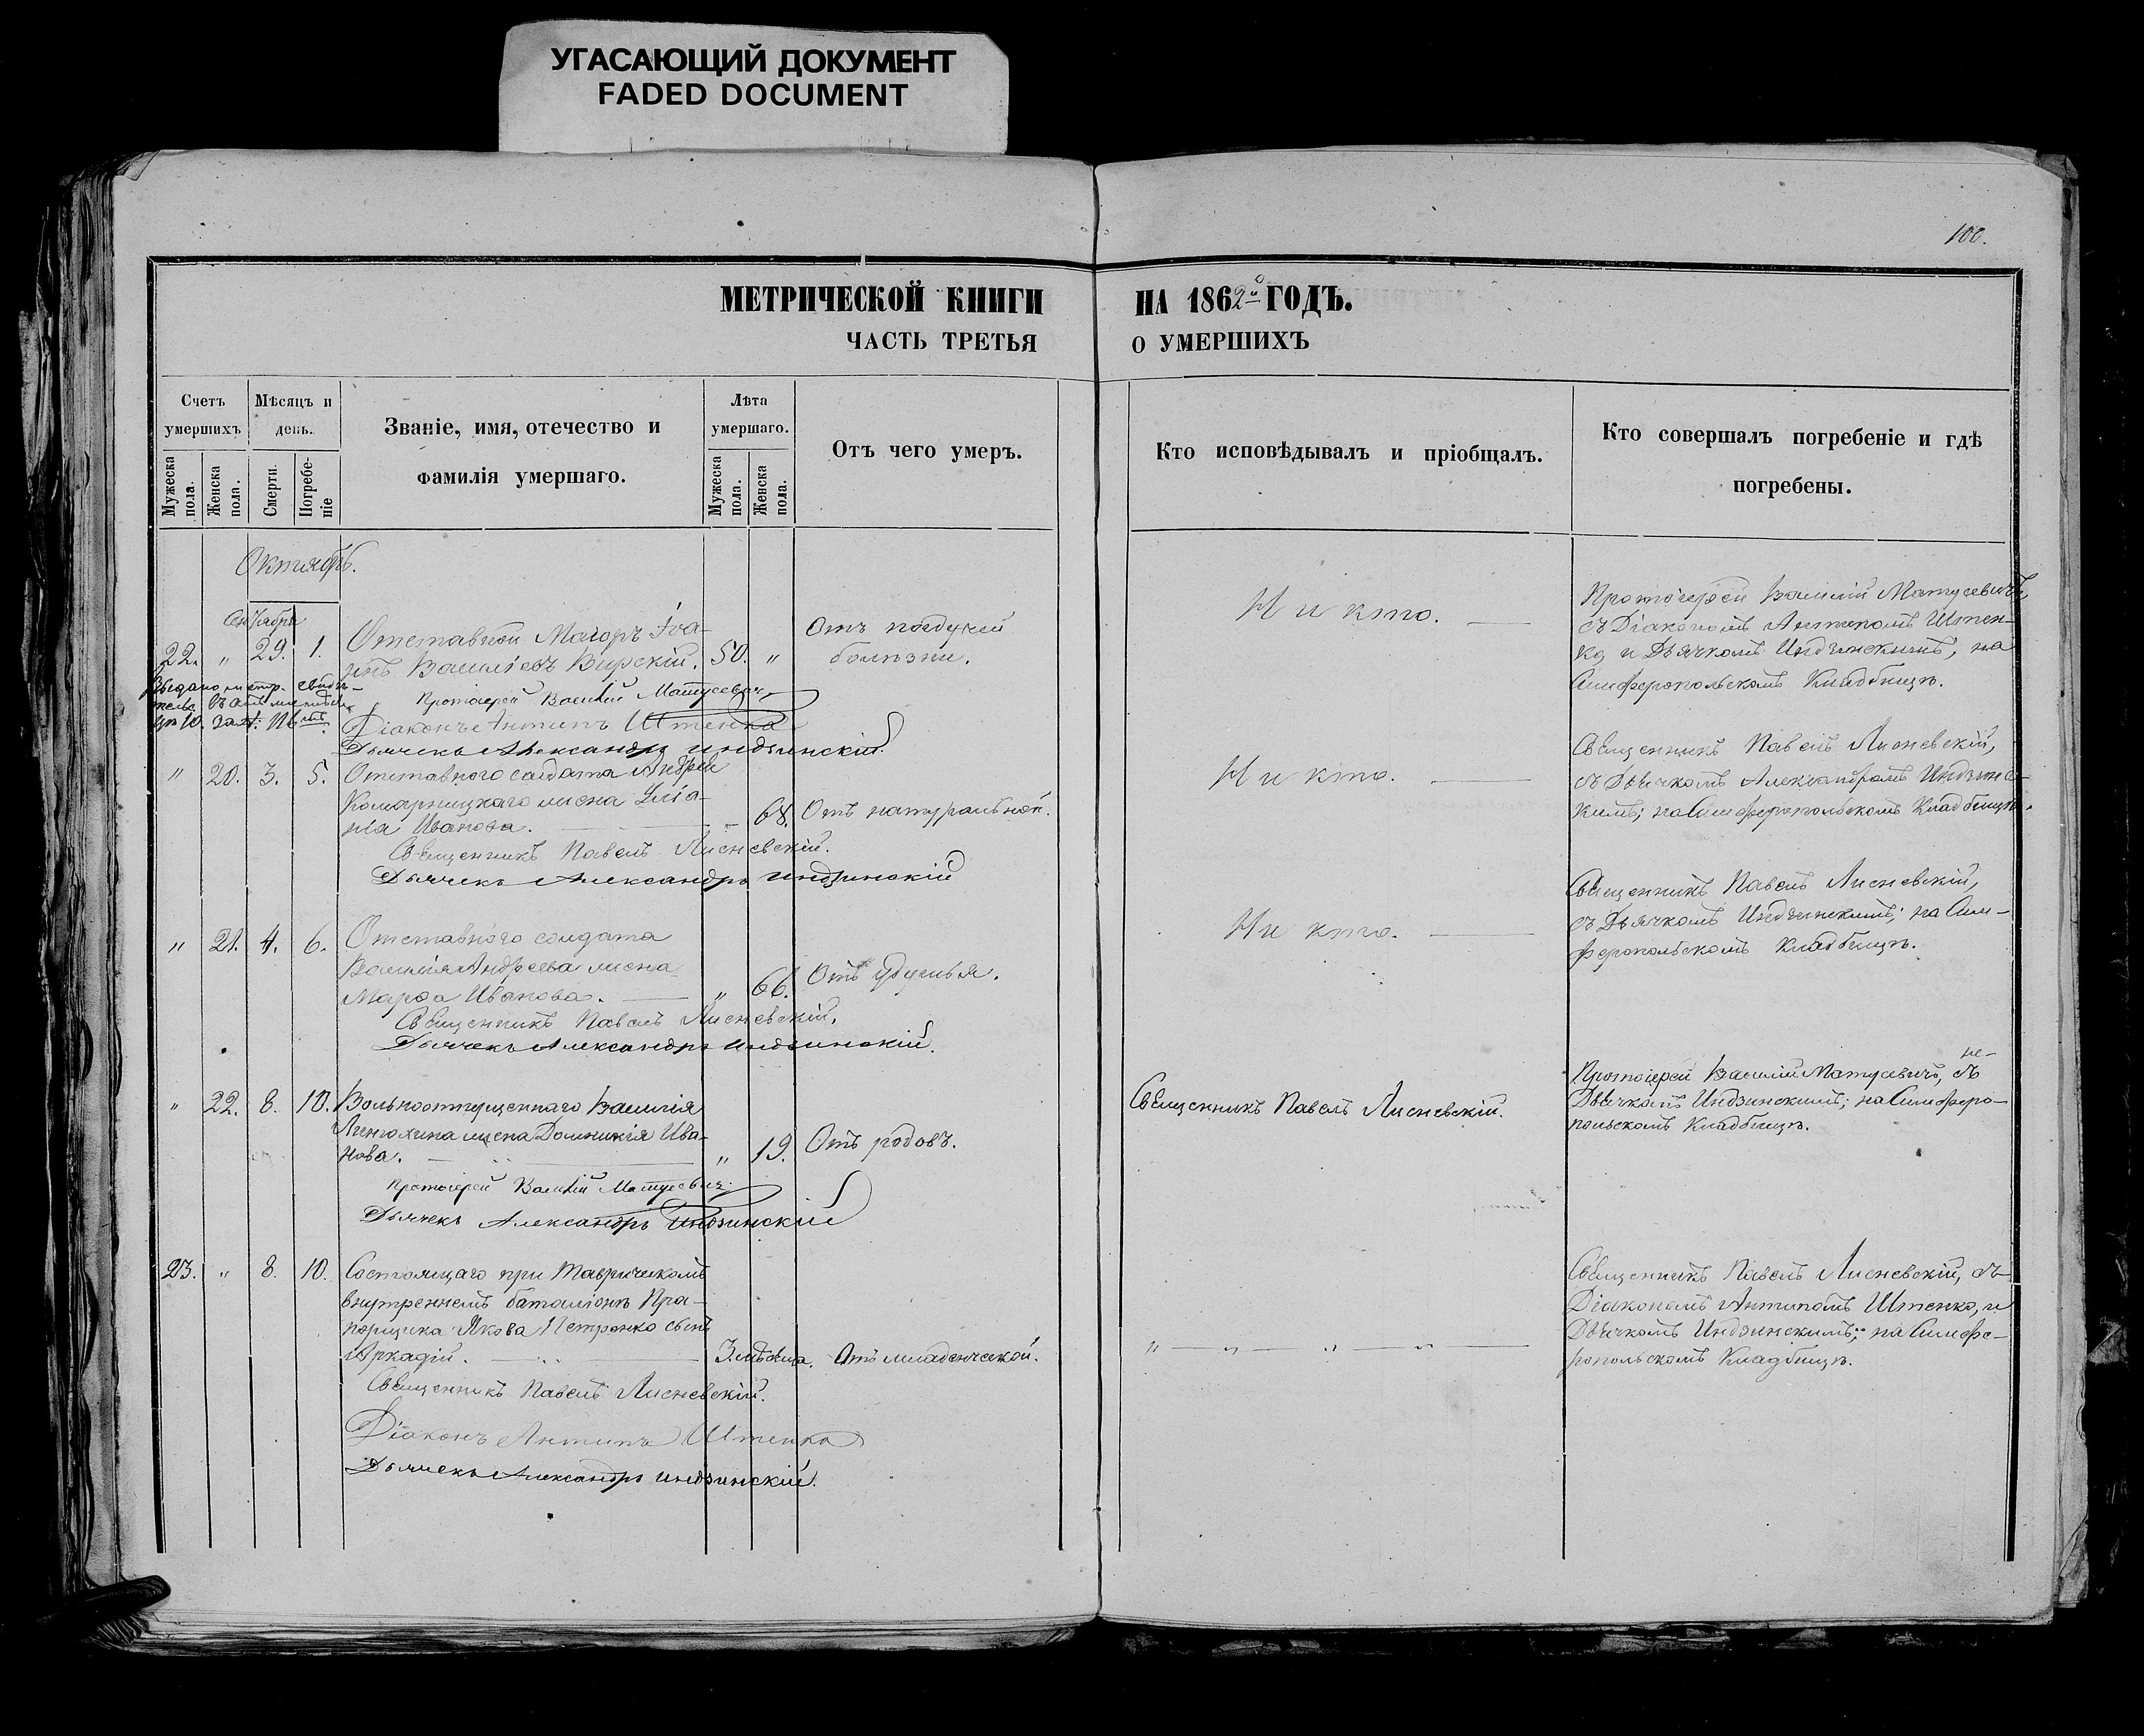 УГАСАЮЩИЙ ДОКУМЕНТ
FADED DOCUMENT
100.
МЕТРИЧЕСКОЙ КНИГИ
ЧАСТЬ ТРЕТЬЯ
НА 1862й ГОДЪ.
О УМЕРШИХЪ
Счетъ умершихъ
Мѣсяцъ и день.
Званіе, имя, отечество и
фамилія умершаго.
Лѣта умершаго.
Отъ чего умеръ.
Кто исповѣдывалъ и пріобщалъ.
Кто совершалъ погребеніе и гдѣ
погребены.
Мужеска пола.
Женска пола.
Смерти.
Погребеніе
Мужеска пола.
Женска пола.
Октябрь.
Сентября
22. " 29. 1.
Отставной Маіоръ Іоа-
ннъ Васильевъ Вирскій. 50. "
Отъ падучей
болѣзни.
Никто.
Протоіерей Василій Матусевичъ,
съ Діакономъ Антипомъ Штен-
ко и Дьячкомъ Индзинскимъ, на
Симферопольскомъ Кладбищѣ.
Протоіерей Василій Матусевич
Діаконъ Антипъ Штенко
Дьячекъ Александръ Индзинскій.
" 20. 3. 5.
Отставного солдата Андрея
Комарницкаго жена Уліа-
нія Иванова. 68. Отъ натуральной.
Никто.
Священникъ Павелъ Лисневскій,
съ Дьячкомъ Александромъ Индзинс-
кимъ; на Симферопольскомъ Кладбищѣ.
Священникъ Павелъ Лисневскій.
Дьячекъ Александръ Индзинскій
" 21. 4. 6.
Отставного солдата
Василія Андреева жена
Марѳа Иванова. " 66. Отъ удушья.
Никто.
Священникъ Павелъ Лисневскій,
съ Дьячкомъ Индзинскимъ; на Сим-
феропольскомъ Кладбищѣ.
Священникъ Павелъ Лисневскій.
Дьячекъ Александръ Индзинскій.
" 22. 8. 10.
Вольноотпущеннаго Василія
жена Домникія Ива-
нова. " 19. Отъ родовъ.
Священникъ Павелъ Лисневскій.
Протоіерей Василій Матусевичъ, съ
Дьячкомъ Индзинскимъ; на Симферо-
польскомъ Кладбищѣ.
Протоіерей Василій Матусевич
Дьячекъ Александръ Индзинскій
23. " 8. 10.
Состоящаго при Таврическомъ
внутреннемъ баталіонѣ Пра-
порщика Якова Петренко сынъ
Аркадій. 3. мѣсяца. Отъ младенческой.
Священникъ Павелъ Лисневскій, съ
Діакономъ Антипомъ Штенко, и
Дьячкомъ Индзинскимъ; на Симфе-
ропольскомъ Кладбищѣ.
Священникъ Павелъ Лисневскій.
Діаконъ Антипъ Штенко
Дьячекъ Александръ Индзинскій.